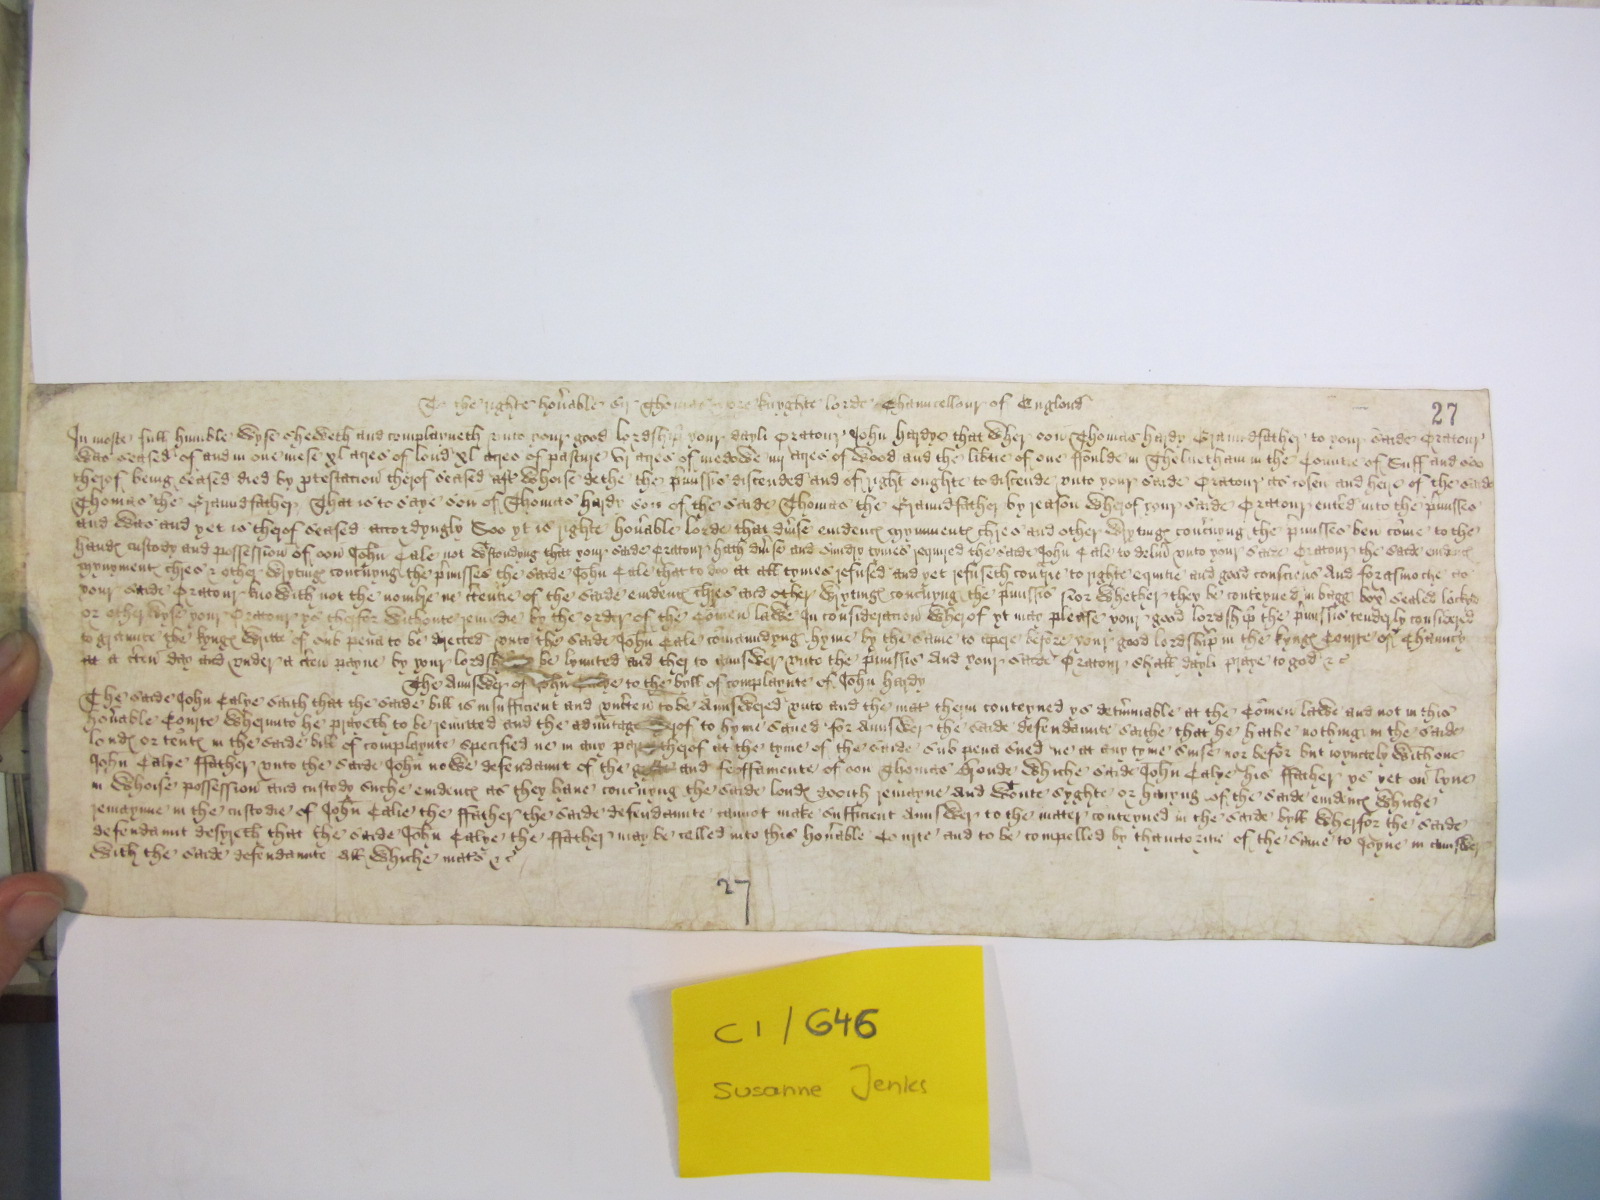 To the righte hon'able Sir Thomas More knyghte lorde Chauncellour of Englond
27
In moste full humble wyse sheweth and complayneth unto your good lordship your dayli Oratour John Hardye that wher oon Thomas Hardy Graundfather to your saide Oratour
was seased of and in one mese xl acres of lond xl acres of pasture vj acres of medowe iiij acres of wood and the lib'tie of one ffoulde in Thelnetham in the Countie of Suff and soo
therof being seased died by p'testacion therof seased aft' whoise dethe the p'missis discended and of right oughte to discende unto your saide Oratour as cosen and heire of the saide
Thomas the Graundfather That is to saye son of Thomas Hardy son of the saide Thomas the Graundfather by reason wherof your saide Oratour ent'ed into the p'misses
and was and yet is therof seased accordyngly Soo yt is righte hon'able lorde that div'se evidence mynumentes chres and other wrytinges conc'nyng the p'misses ben come to the
handes custody and possession of oon John Cale not w'stondyng that your saide Oratour hath div'se and sundry tymes required the saide John Cale to deliv' unto your saide Oratour the saide evidences
mynymentes chres & other wrytinges conc'nyng the p'misses the saide John Cale that to doo at all tymes refused and yet refuseth contr'ie to righte equitie and good consciens And forasmoche as
your saide Oratour knowith not the nombre ne c'tentie of the saide evidences chres and other wrytinges conc'nyng the p'missis nor whether they be conteyned in bagg box sealed locked
or otherwyse your Oratour ys therfor withoute remedie by the order of the Comen lawe In consideration wherof yt may please your good lordship the p'missis tenderly considered
to graunte the kynges writte of sub pena to be directed unto the saide John Cale comaundyng hyme by the same to apere before your good lordship in the kynges Courte of Chauncy
at a c'ten day and under a c'ten payne by your lordship be lymited and ther to aunswer unto the p'missis And your saide Oratour shall dayli praye to god &c
The Aunswer of John Calye to the byll of complaynte of John Hardy
The saide John Calye saith that the saide bill is insufficient and unc'ten to be Aunswered unto and the mat' therin conteyned ys det'minable at the Comen lawe and not in this
hon'able Courte wherunto he prayeth to be remitted and the advauntage therof to hyme saved for Aunswer the saide defendaunte saithe that he hathe nothing in the saide
londes or ten'tes in the saide bill of complaynte specified ne in any parte therof at the tyme of the saide sub pena sued ne at any tyme sinse nor befor but joyntely with one
John Calye ffather unto the saide John nowe defendaunt of the gyfte and feoffamente of oon Thomas Bronde whiche saide John Calye his ffather ys yet on lyve
in whoise possession and custody suche evidences as they have conc'nyng the saide londes doith remayne And w'oute syghte or havyng of the saide evidences whiche
remayne in the custodie of John Calie the ffather the saide defendaunte cannot make sufficient Aunswer to the mater conteyned in the saide byll Wherfor the saide
defendaunt desyreth that the saide John Calye the ffather may be called into this hon'able Courte and to be compelled by thauctoritie of the same to Joyne in aunswer
with the saide defendaunte All whiche mat's &c
27
C1/646
Susanne Jenks